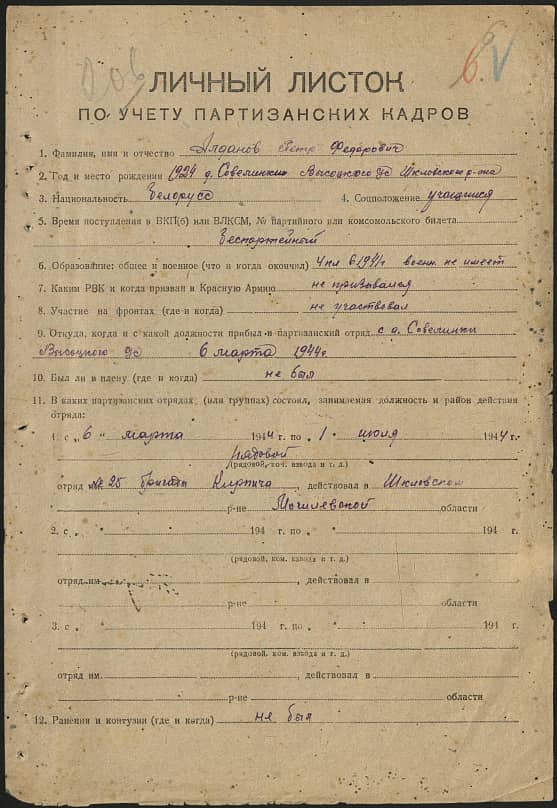 ЛИЧНЫЙ ЛИСТОК
ПО УЧЕТУ ПАРТИЗАНСКИХ КАДРОВ
1. Фамилия, имя и отчество Алданов Петр Федорович
2. Год и место рождения 1924 д. Савелинки Высоцкого с/с Шкловского р-на
3. Национальность Белорусс 4. Соцположение учащийся
5. Время поступления в ВКП(б) или ВЛКСМ, № партийного или комсомольского билета
Беспартейный
6. Образование: общее и военное (что и когда окончил) 4 кл в 1941г воен. не имеет
7. Каким РВК и когда призван в Красную Армию не призывался
8. Участие на фронтах (где и когда) не участвовал
9. Откуда, когда и с какой должности прибыл в партизанский отряд с д. Савелинки
Высоцкого с/с 6 марта 1944г
10. Был ли в плену (где и когда) не был
11. В каких партизанских отрядах, (или группах) состоял, занимаемая должность и район действия
отряда:
1. с „6 " марта 1944 г. по „1 " июля 1944 г.
рядовой
(рядовой, ком. взвода и т. д.)
отряд им. № 25 бригады Кирпича, действовал в Шкловском
р-не Могилевской области
2. с „ " 194 г. по „ " 194 г.
(рядовой, ком. взвода и т. д.)
отряд им. , действовал в
р-не области
3. с „ " 194 г. по „ " 194 г.
(рядовой, ком. взвода и т. д.)
отряд им. , действовал в
р-не области
12. Ранения и контузии (где и когда) не был